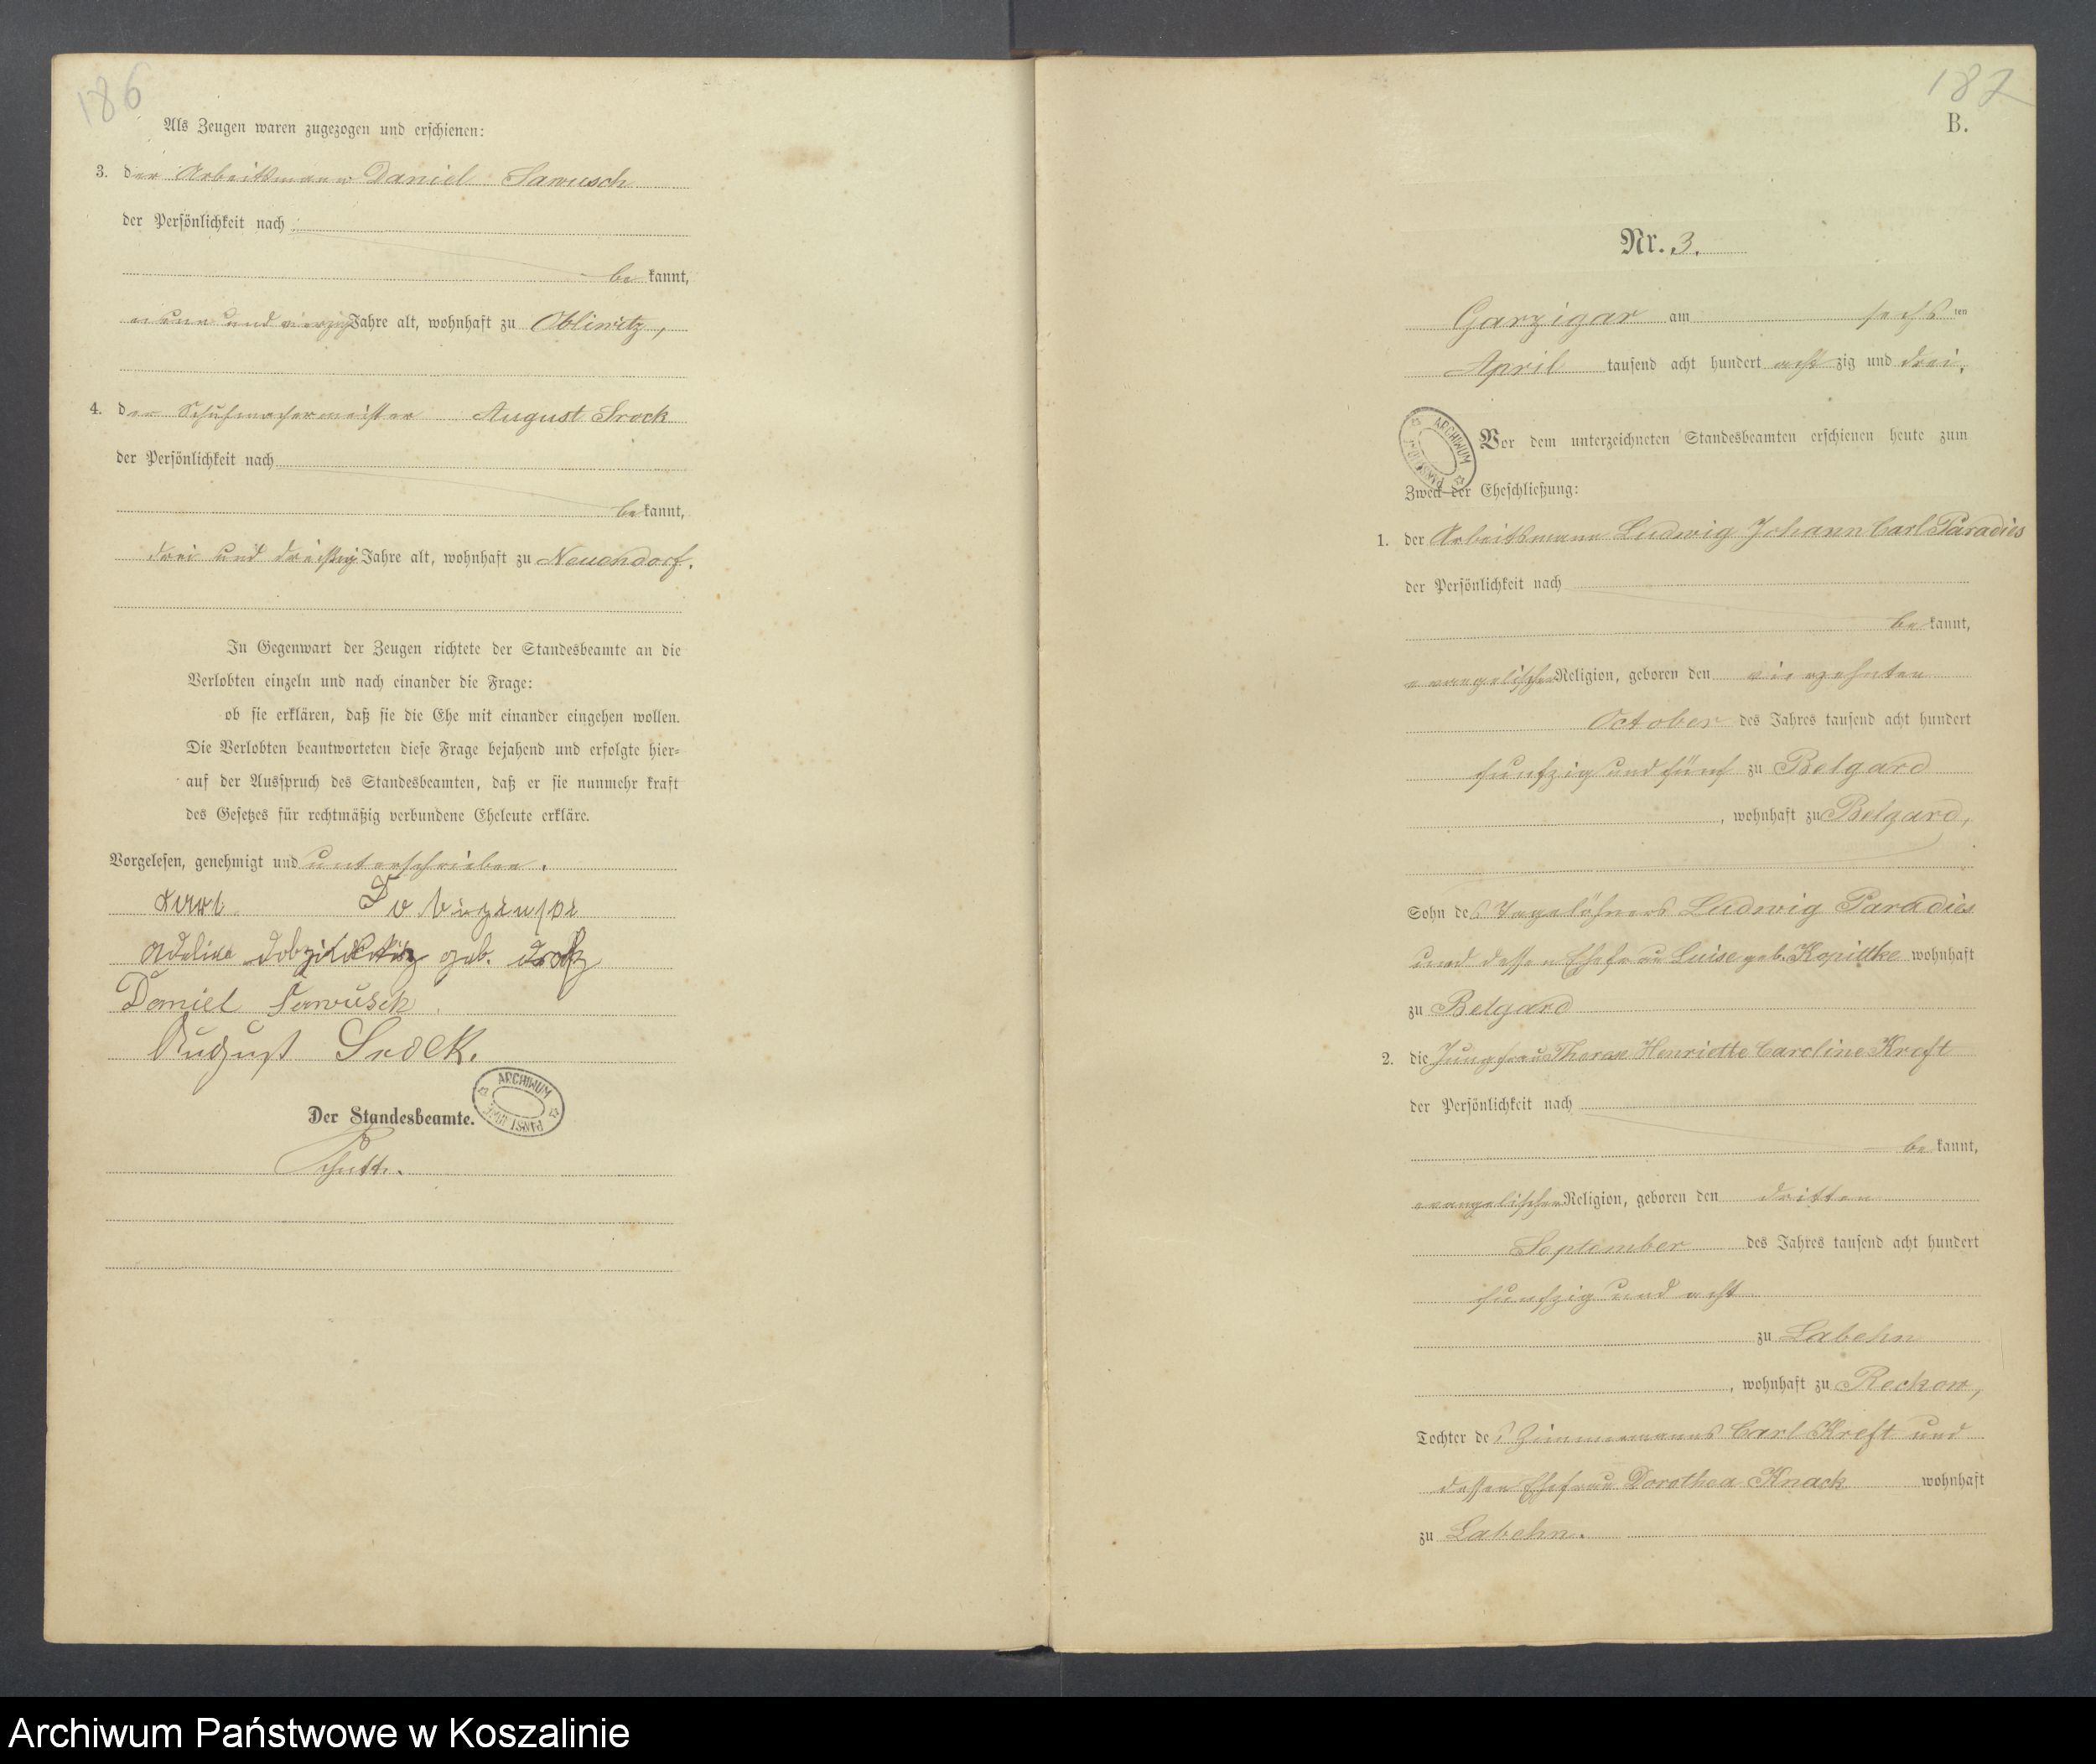 186
Als Zeugen waren zugezogen und erschienen:
3. der Arbeitsmann Daniel Sawusch
der Persönlichkeit nach
be kannt,
neun und vierzig Jahre alt, wohnhaft zu Obliwitz,
4. der Schuhmachermeister August Srock
der Persönlichkeit nach
be kannt,
drei und dreißig Jahre alt, wohnhaft zu Neuendorf.
In Gegenwart der Zeugen richtete der Standesbeamte an die
Verlobten einzeln und nach einander die Frage:
ob sie erklären, daß sie die Ehe mit einander eingehen wollen.
Die Verlobten beantworteten diese Frage bejahend und erfolgte hier-
auf der Ausspruch des Standesbeamten, daß er sie nunmehr kraft
des Gesetzes für rechtmäßig verbundene Eheleute erkläre.
Vorgelesen, genehmigt und unterschrieben.
geb.
Daniel Sawusch
August Srock.
Der Standesbeamte.
ARCHIWUM PAŃSTWOWE
187
B.
Nr. 3.
Garzigar am sechsten
April tausend acht hundert achtzig und drei.
ARCHIWUM PAŃSTWOWE
Vor dem unterzeichneten Standesbeamten erschienen heute zum
Zweck der Eheschließung:
1. der Arbeitsmann Ludwig Johann Carl Paradies
der Persönlichkeit nach
be kannt,
evangelischer Religion, geboren den vierzehnten
October des Jahres tausend acht hundert
funfzig und fünf zu Belgard
, wohnhaft zu Belgard,
Sohn des Tagelöhners Ludwig Paradies
und dessen Ehefrau Luise geb. Kopittke wohnhaft
zu Belgard
2. die Jungfrau Therese Henriette Caroline Kreft
der Persönlichkeit nach
be kannt,
evangelischer Religion, geboren den dritten
September des Jahres tausend acht hundert
funfzig und acht
zu Labehn
, wohnhaft zu Reckow,
Tochter des Zimmermanns Carl Kreft und
dessen Ehefrau Dorothea Knack wohnhaft
zu Labehn.
Archiwum Państwowe w Koszalinie